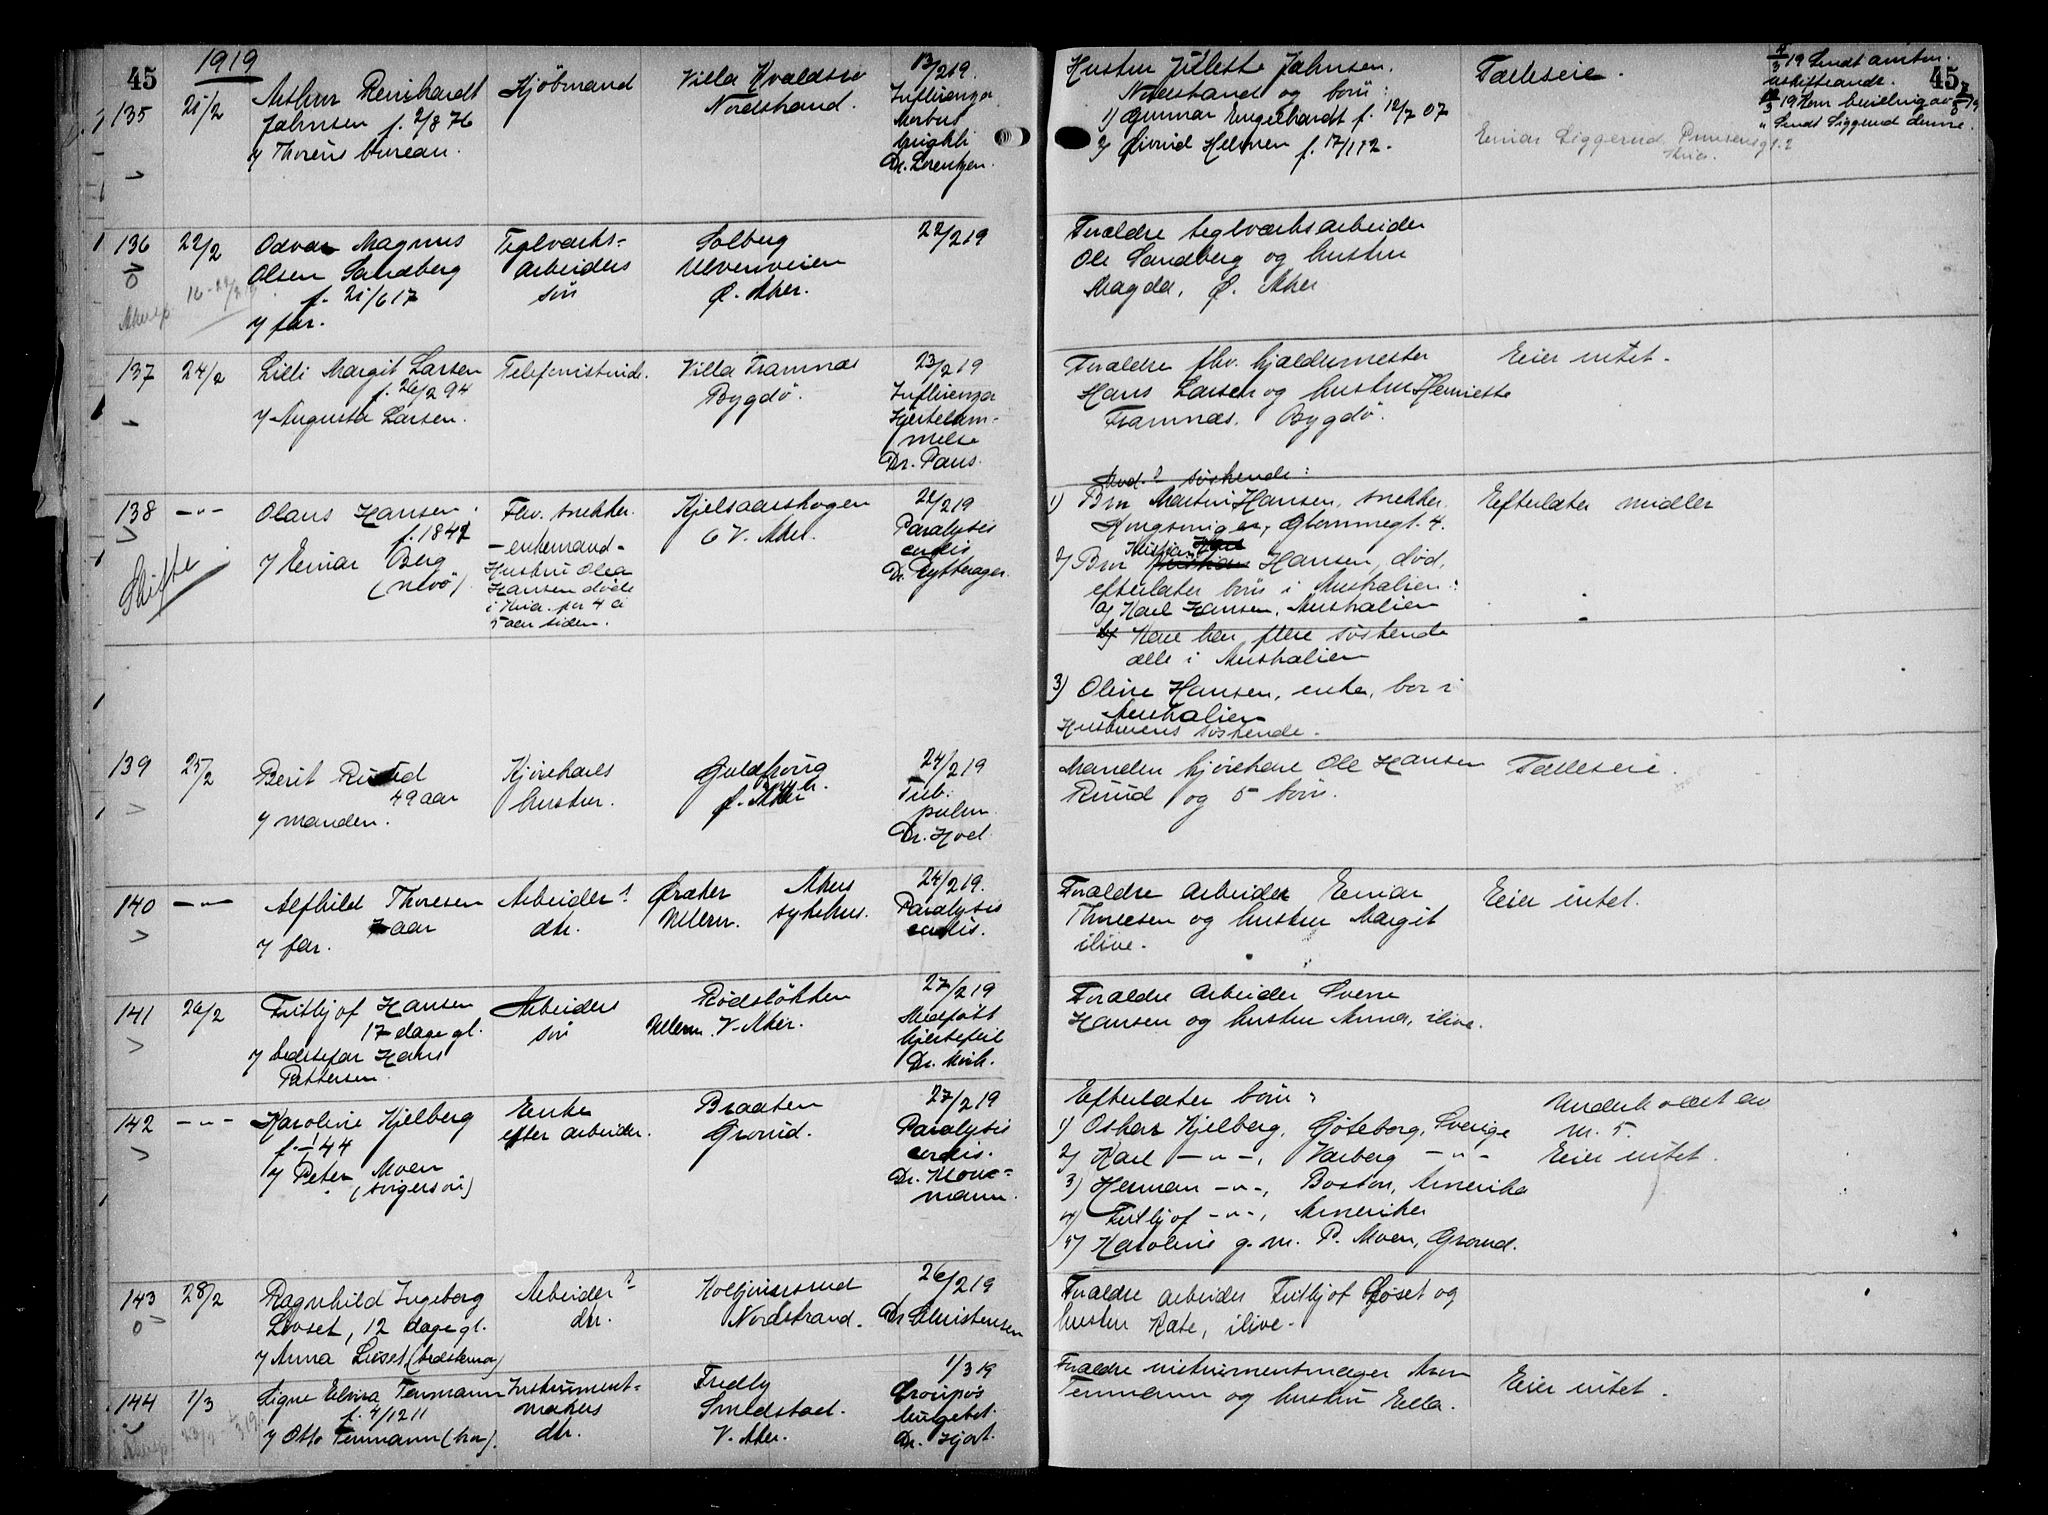 45
1919
135
21/2
Arthur Reinhardt
Jahnsen f. 2/8 76
v/ Thorens bureau.
Kjöbmand
Villa
Nordstrand.
13/2 19.
Influenza
Morbus
brightii
Dr. Lorentzen.
Hustru Juliette Jahnsen.
Nordstrand og börn:
1) Gunnar Engelhardt f. 12/7 07
2) Öivind Helmer f. 17/1 12.
Fælleseie.
45
Einar Siggerud
136
22/2
Odvar Magnus
Olsen Sandberg
f. 21/6 17
v/ far.
Teglverks-
arbeiders
sön
Solberg
Ulvenveien
Ö. Aker.
22/2 19
Forældre teglverksarbeider
Ole Sandberg og hustru
Magda, Ö. Aker
137
24/2
Lilli Margit Larsen
f. 26/2 94
v/ Augusta Larsen.
Telefonistinde.
Villa Framnæs
Bygdö.
23/2 19
Influenza
Hjertelam-
melse
Dr. Paus.
Forældre fhv.
Hans Larsen og hustru Henriette
Framnæs, Bygdö.
Eier intet.
138
-"-
Skifte
Olaus Hansen
f. 1847
v/ Einar Berg
(nevö).
Fhv. snekker.
-enkemand-
Hustru Olea
Hansen döde
i Kria. for 4 a
5 aar siden.
Kjelsaasskogen
6 V. Aker.
22/2 19
Paralysis
cordis
Dr. Rytterager.
söskende:
1) Bror Martin Hansen, snekker,
Kongsvinger, Glommegt. 4.
2) Bror Kristian Hansen, död,
efterlater börn i Australien:
a) Karl Hansen, Australien
b) Karl har flere söskende
alle i Australien
3) Oline Hansen, enke, bor i
Australien
Hustruens söskende.
Efterlater midler
139
25/2
Berit Ruud
49 aar
v/ manden.
Kjörekarls
hustru.
24/2 19
Tub.
pulm.
Dr. Hoel
Manden kjörekarl Ole Hansen
Ruud og 5 börn.
Fælleseie.
140
-"-
Alfhild Thoresen
aar
v/ far.
Arbeiders
dtr.
Öraker
Ullern.
Akers
sykehus.
24/2 19.
Paralysis
cordis.
Forældre arbeider Einar
Thoresen og hustru Margit
ilive.
Eier intet.
141
26/2
Fritjof Hansen
17 dage gl.
v/ bedstefar Hans
Pettersen.
Arbeiders
sön
Rödslökken
Ullern V. Aker.
27/2 19
Medfött
hjertefeil
Dr.
Forældre arbeider Sverre
Hansen og hustru Anna, ilive.
142
-"-
Karoline Kjelberg
f. 1/1 44
v/ Peter Moen
(svigersön)
Enke
efter arbeider.
Braaten
Grorud.
27/2 19
Paralysis
cordis.
Dr. Klouc-
mann.
Efterlater börn:
1) Oskar Kjelberg, Göteborg, Sverige
2) Karl -"-, Varberg -"-
3) Herman -"-, Boston, Amerika
4) Fritjof -"-, Amerika
5) Karoline g. m. P. Moen, Grorud.
Underholdt av
nr. 5.
Eier intet.
143
28/2
Ragnhild Ingeborg
12 dage gl.
v/ Anna (bedstemor)
Arbeiders
dtr.
Nordstrand.
26/2 19
Dr. Christensen
Forældre arbeider Fritjof
hustru Kate, ilive.
144
1/3
Signe Elvira Tenmann
f. 4/12 11
v/ Otto Tenmann (bror).
Instrument-
makers
dtr.
Fredly
Smedstad.
V. Aker.
1/3 19
Croupös
lungebet.
Dr. Hjort.
Forældre instrumentmager
Tenmann og hustru Ella.
Eier intet.